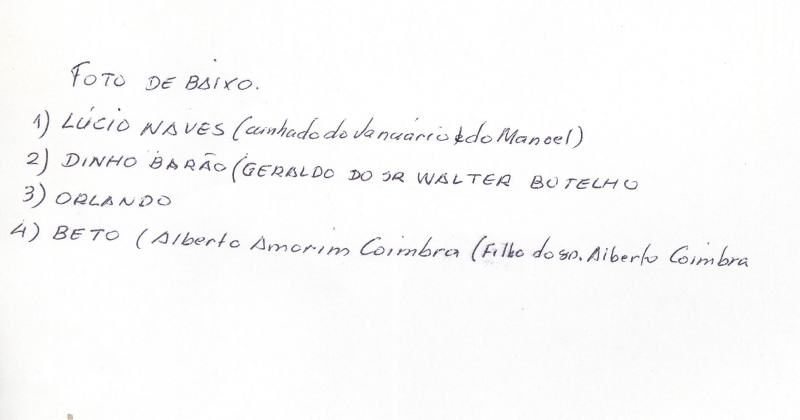 FOTO DE BAIXO.
1) LÚCIO NAVES (cunhado do Januário e do Manoel)
2) DINHO BARÃO (GERALDO DO SR WALTER BOTELHO
3) ORLANDO
4) BETO (Alberto Amorim Coimbra (Filho do sr. Alberto Coimbra